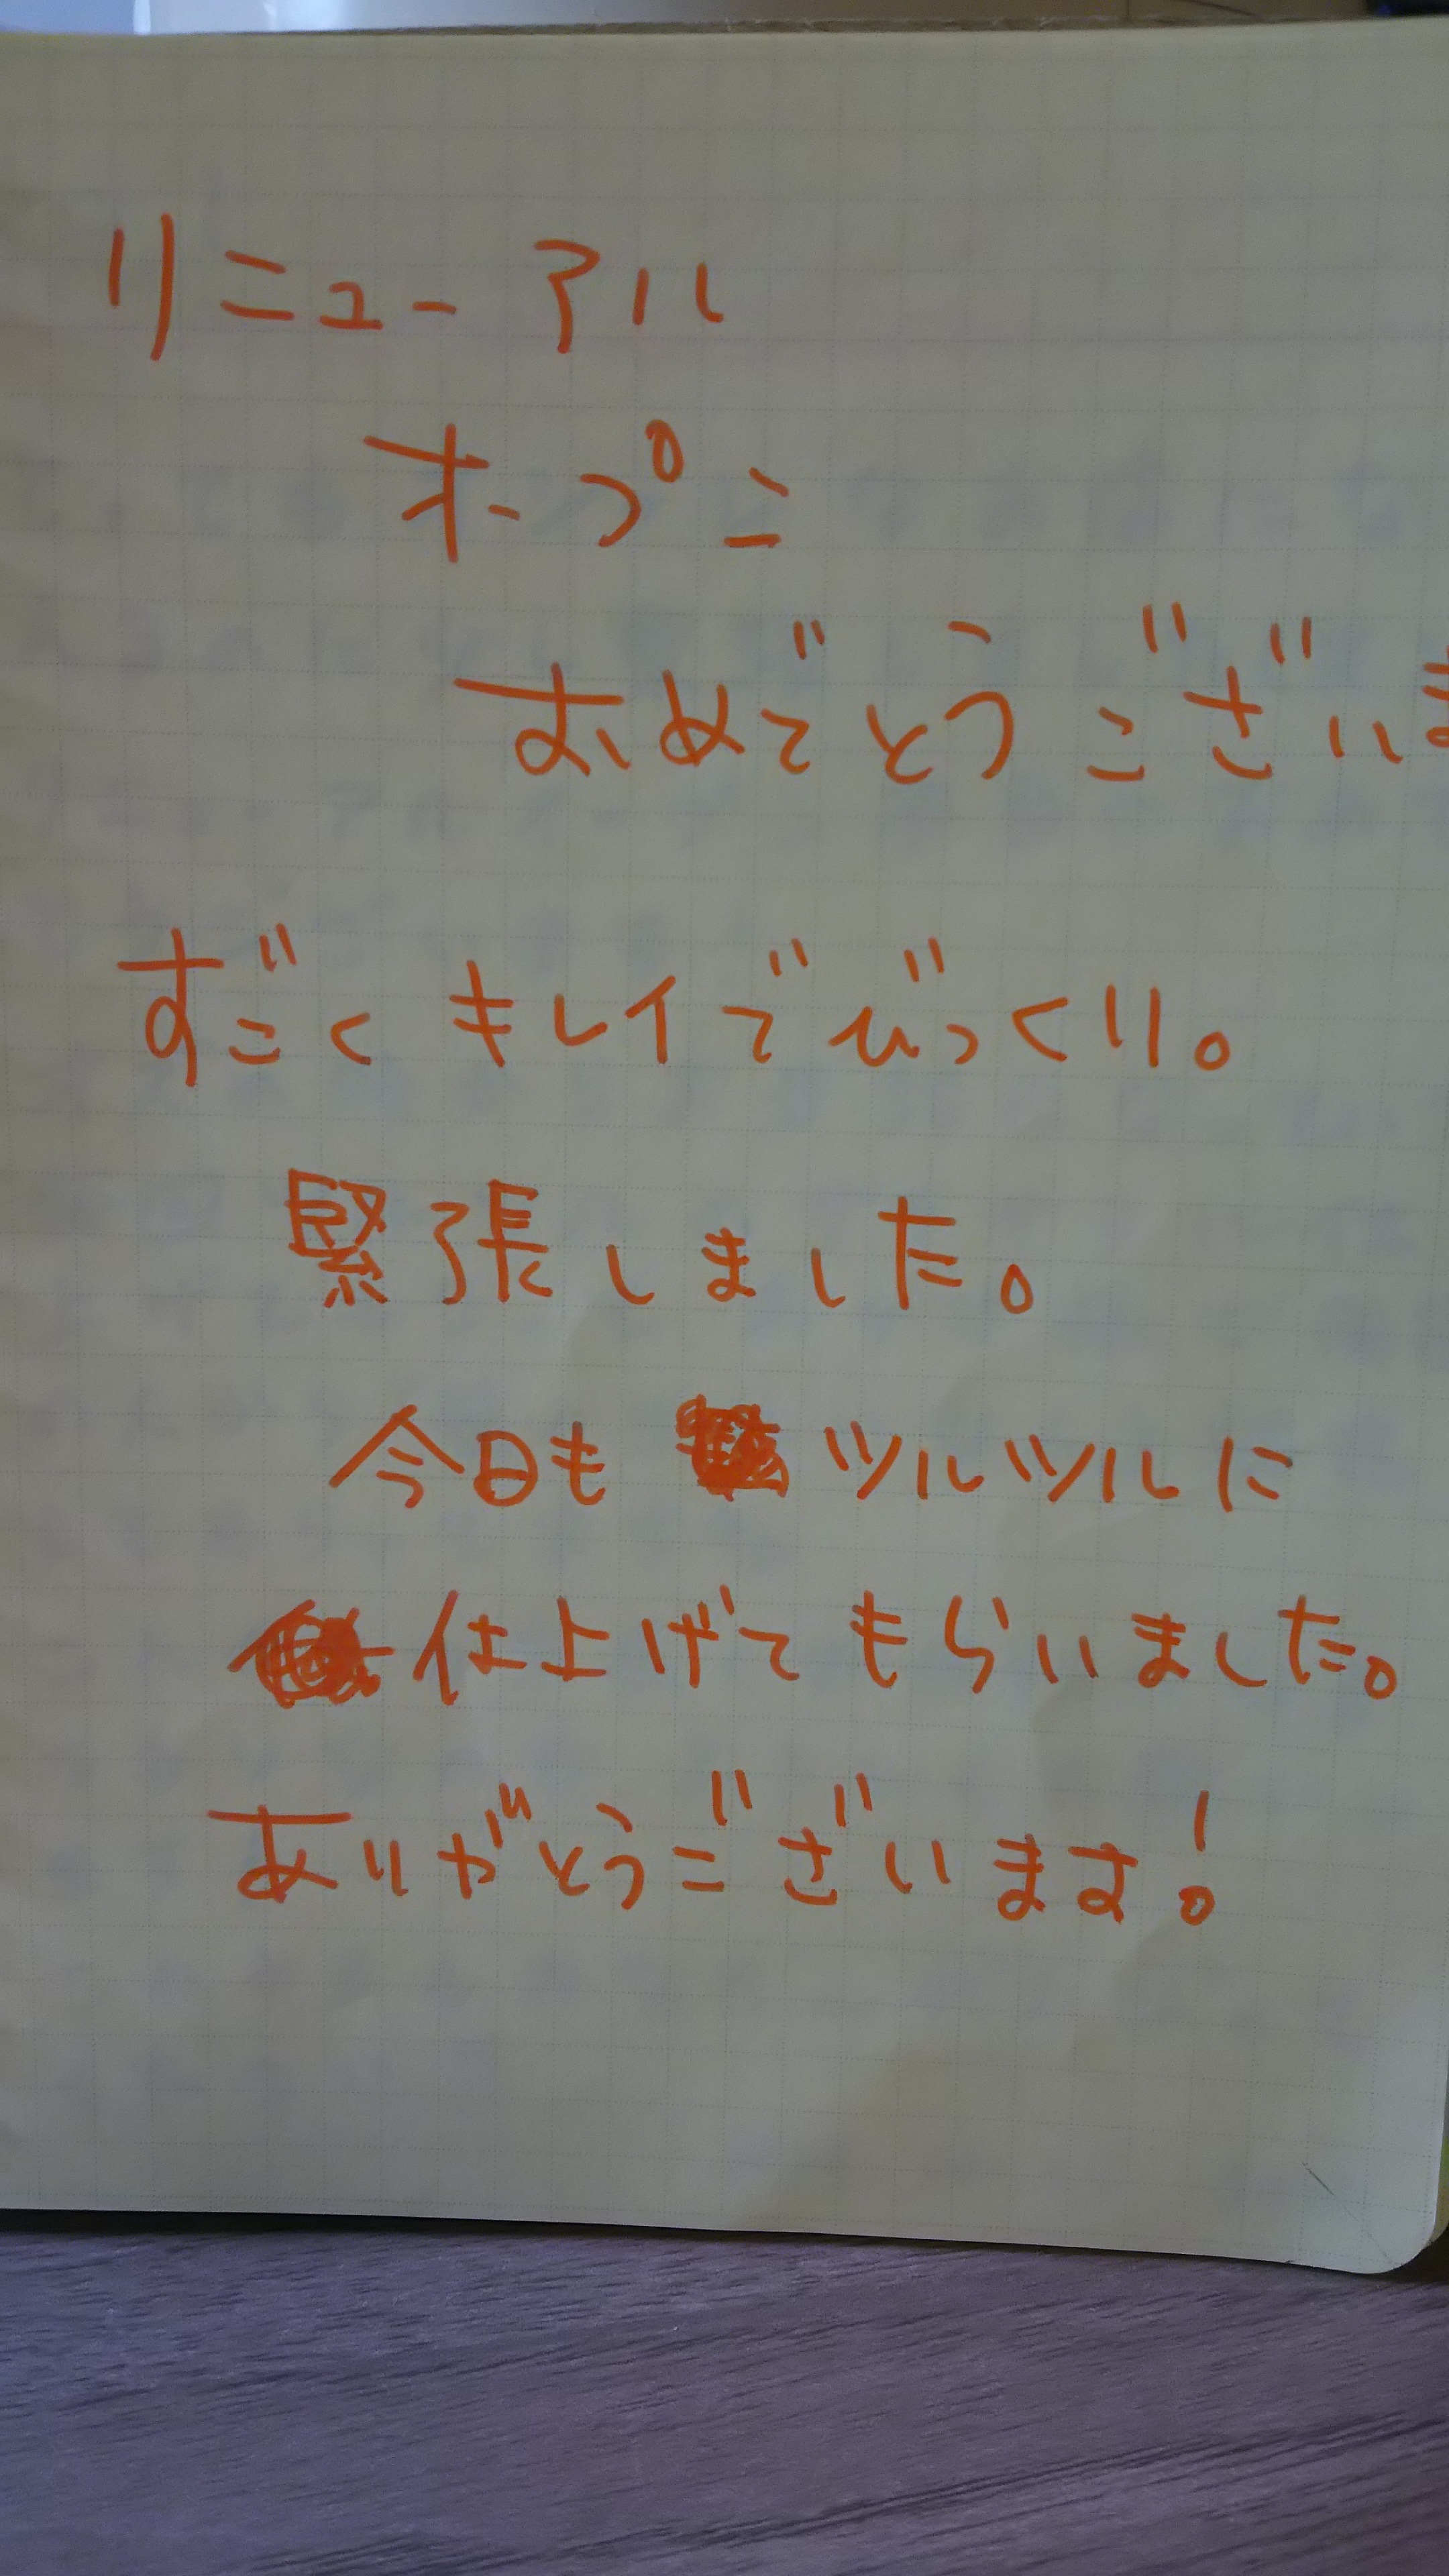 リニューアル
オープン
おめでとうございま
すごくキレイでびっくり。
緊張しました。
今日も ツルツルに
仕上げてもらいました。
ありがとうございます!